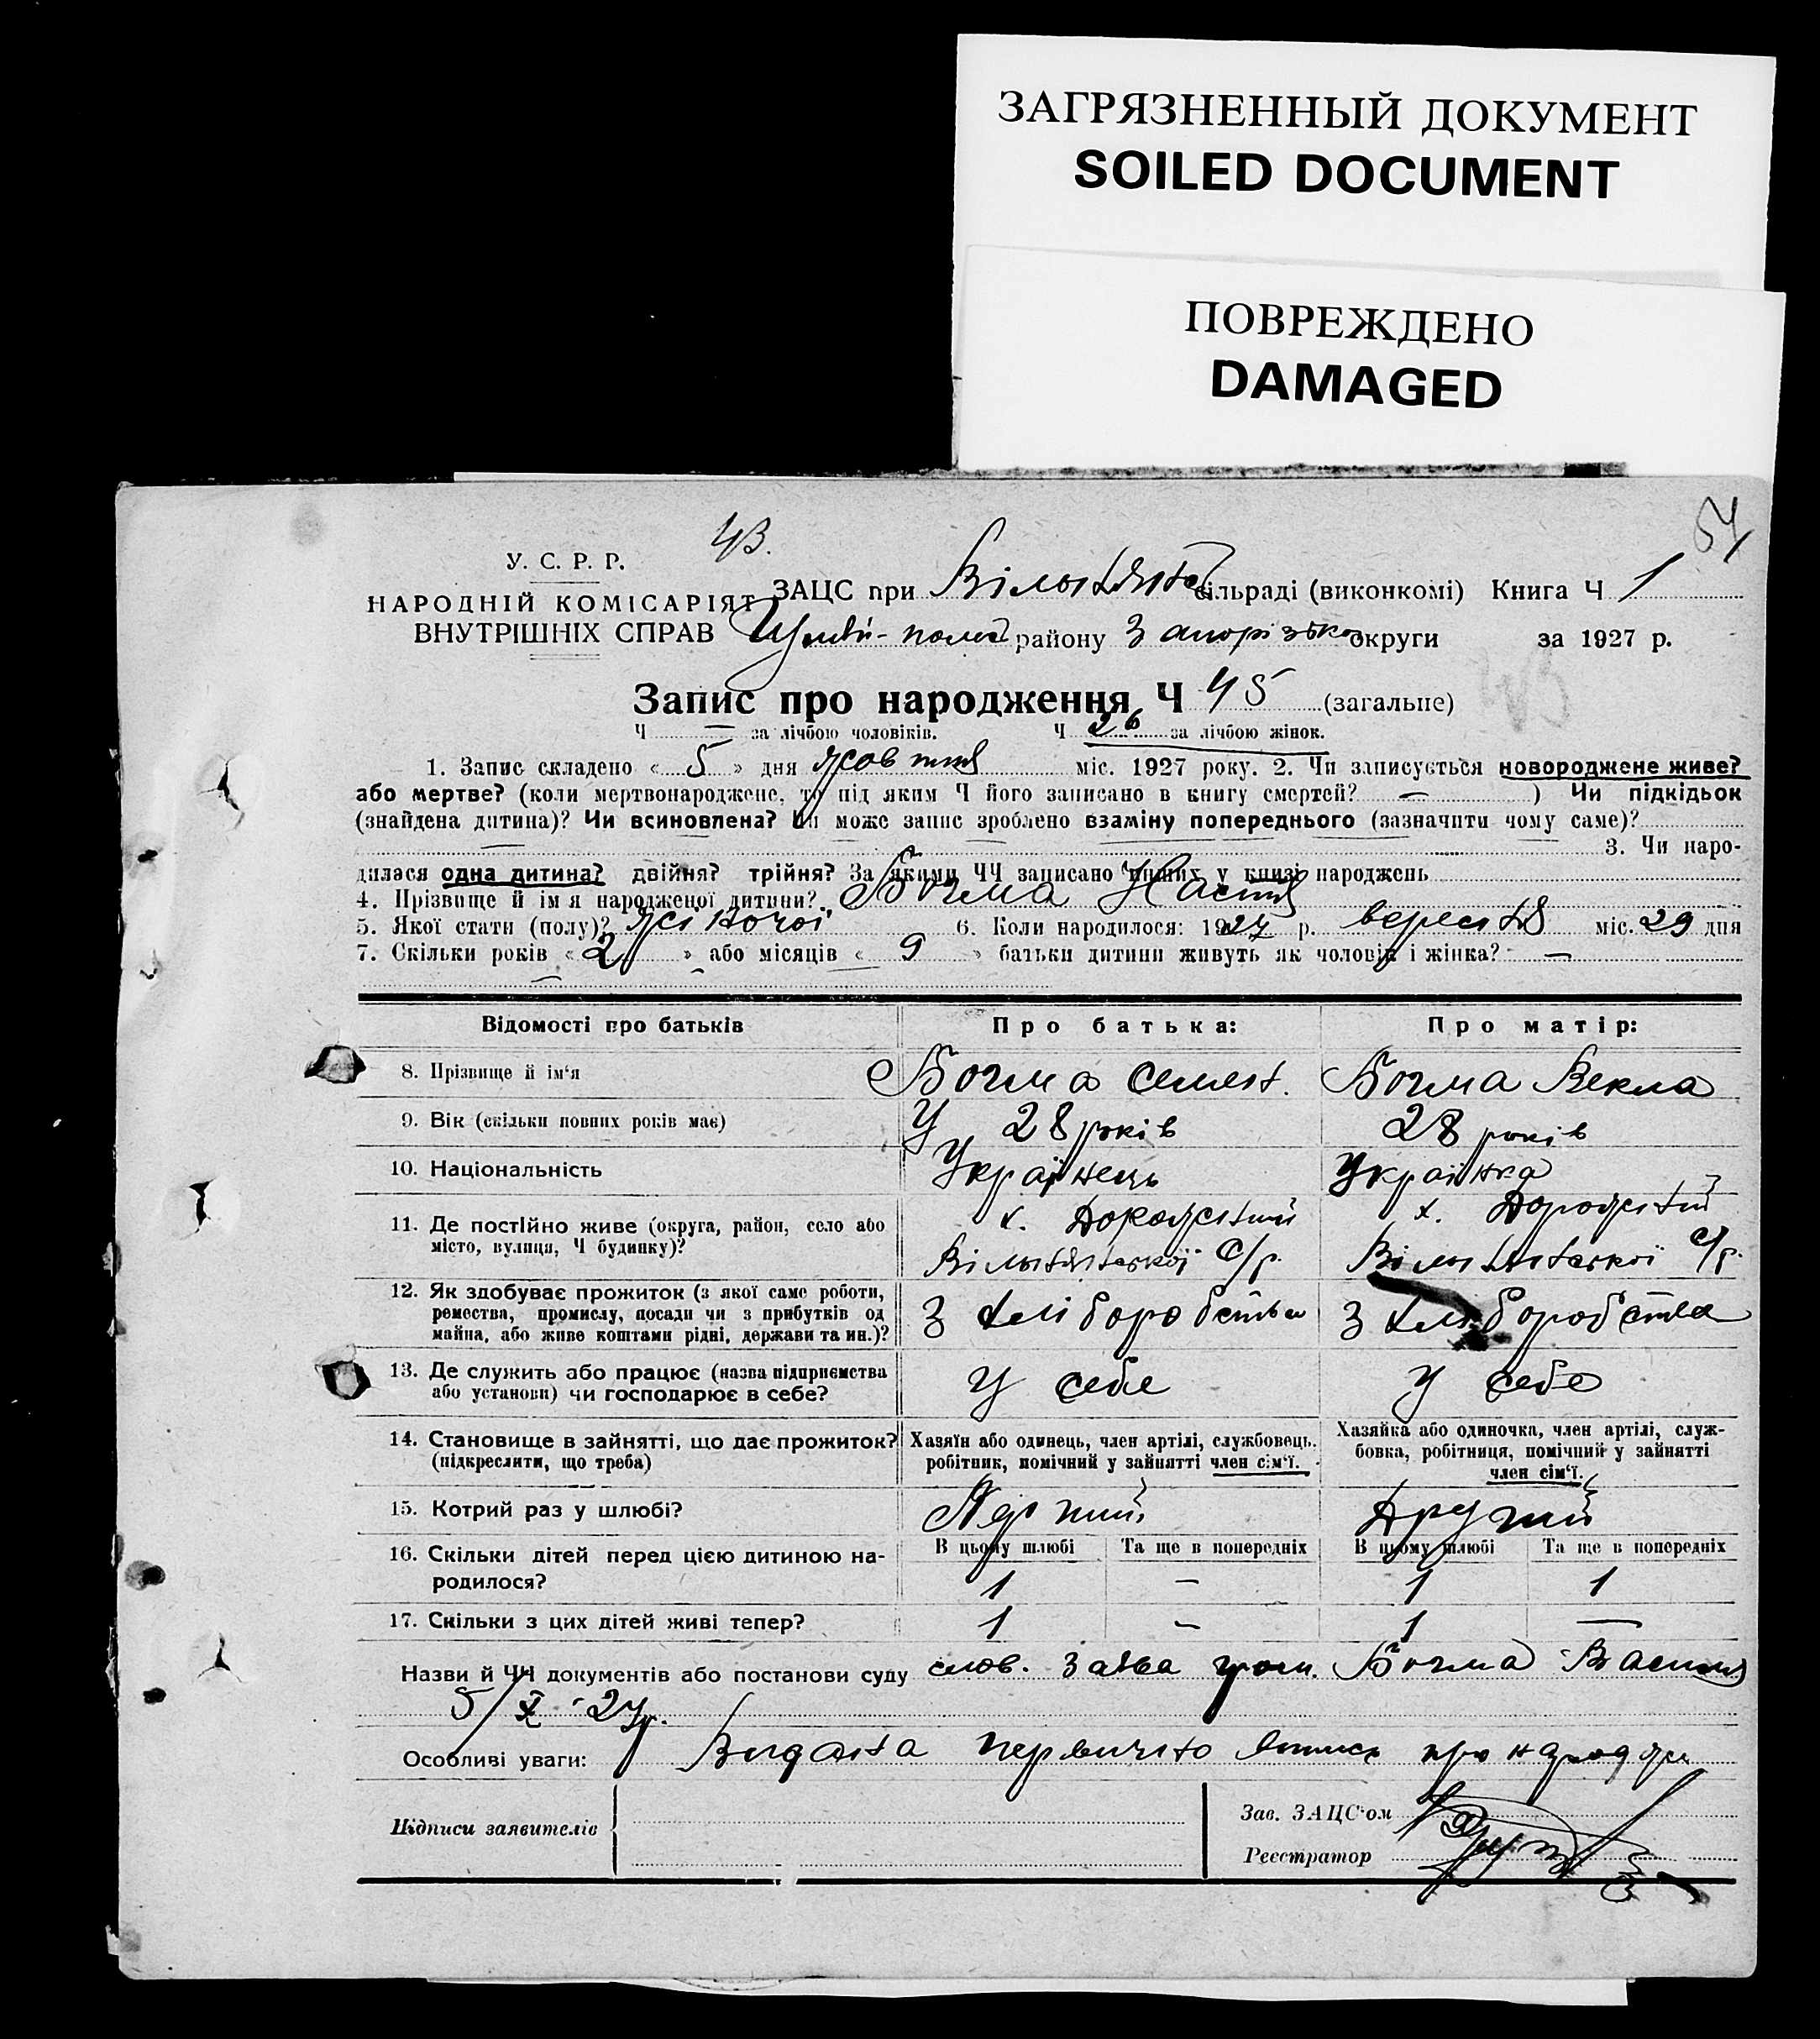 ЗАГРЯЗНЕННЫЙ ДОКУМЕНТ
SOILED DOCUMENT
ПОВРЕЖДЕНО
DAMAGED
43.
54
У. С. Р. Р.
НАРОДНІЙ КОМІСАРІЯТ
ВНУТРІШНІХ СПРАВ
ЗАЦС при сільраді (виконкомі) Книга Ч 1
району Запорізько округи за 1927 р.
Запис про народження Ч 45 (загальне)
43
Ч — за лічбою чоловіків. Ч 26 за лічбою жінок.
1. Запис складено « 5 » дня жовтня міс. 1927 року. 2. Чи записується новороджене живе?
або мертве? (коли мертвонароджене, то під яким Ч його записано в книгу смертей? — ) Чи підкідьок
(знайдена дитина)? Чи всиновлена? Чи може запис зроблено взаміну попереднього (зазначити чому саме)?
— 3. Чи наро-
дилася одна дитина? двійня? трійня? За якими ЧЧ записано інших у книзі народжень
4. Прізвище й ім'я народженої дитини? Бочма Настя
5. Якої стати (полу)? жіночої 6. Коли народилося: 1927 р. вересня міс. 29 дня
7. Скільки років « 2 » або місяців « 9 » батьки дитини живуть як чоловік і жінка? —
Відомості про батьків Про батька: Про матір:
8. Прізвище й ім'я Бочма Семен. Бочма Векла
9. Вік (скільки повних років має) 28 років 28 років
10. Національність Українець Українка
11. Де постійно живе (округа, район, село або
місто, вулиця, Ч будинку)?
х. х.
С/р. С/р.
12. Як здобуває прожиток (з якої саме роботи,
ремества, промислу, посади чи з прибутків од
майна, або живе коштами рідні, держави та ин.)?
З хліборобства З хліборобства
13. Де служить або працює (назва підприємства
або установи) чи господарює в себе?
У себе У себе
14. Становище в зайнятті, що дає прожиток?
(підкреслити, що треба)
Хазяїн або одинець, член артілі, службовець.
робітник, помічний у зайнятті член сім'ї.
Хазяйка або одиночка, член артілі, служ-
бовка, робітниця, помічний у зайнятті
член сім'ї.
15. Котрий раз у шлюбі? Перший Другий
16. Скільки дітей перед цією дитиною на-
родилося?
В цьому шлюбі Та ще в попередніх В цьому шлюбі Та ще в попередніх
1 — 1 1
17. Скільки з цих дітей живі тепер? 1 — 1 —
Назви й ЧЧ документів або постанови суду слов. заява гром. Бочма
5/X-27р.
Особливі уваги: Видана первичну випись про народж
Підписи заявителів
Зав. ЗАЦС'ом
Реєстратор